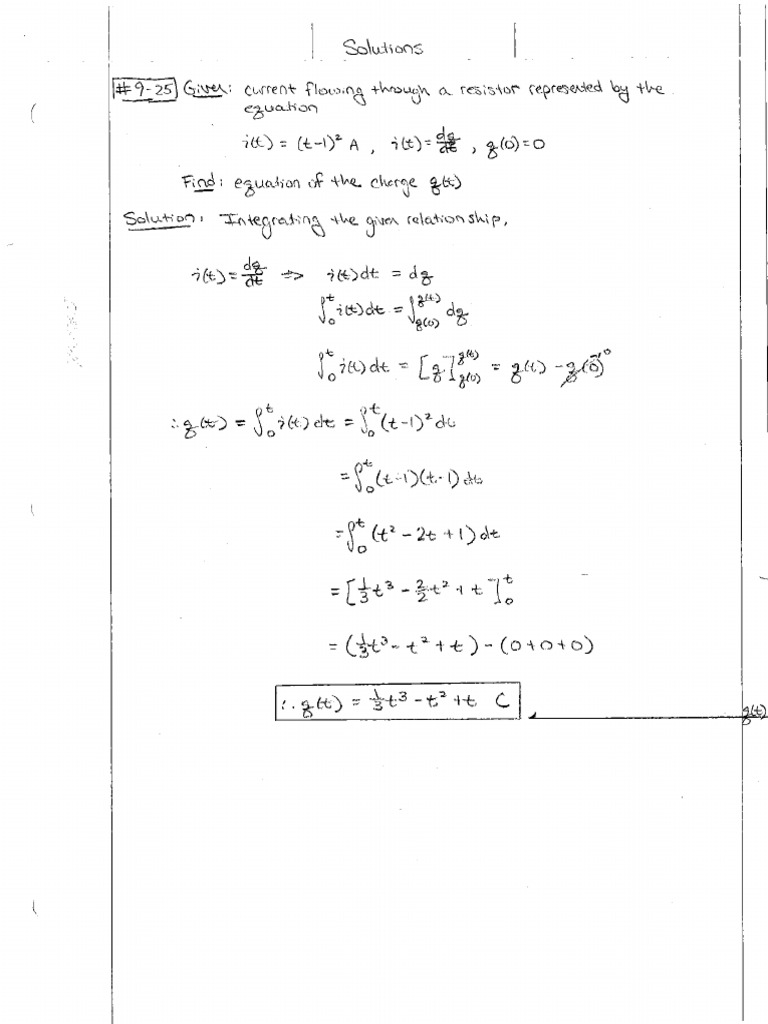 Solutions
#9-25 Given: current flowing through a resistor represented by the
equation
i(t) = (t-1)² A, i(t) = dq/dt, q(0)=0
Find: equation of the charge q(t)
Solution: Integrating the given relationship,
i(t) = dq/dt => i(t)dt = dq
∫₀ᵗ i(t)dt = ∫_{q(0)}^{q(t)} dq
∫₀ᵗ i(t)dt = [q]_{q(0)}^{q(t)} = q(t) - q(0)→0
∴ q(t) = ∫₀ᵗ i(t)dt = ∫₀ᵗ (t-1)² dt
= ∫₀ᵗ (t-1)(t-1) dt
= ∫₀ᵗ (t² - 2t + 1) dt
= [1/3 t³ - 2/2 t² + t]₀ᵗ
= (1/3 t³ - t² + t) - (0+0+0)
∴ q(t) = 1/3 t³ - t² + t C
q(t)